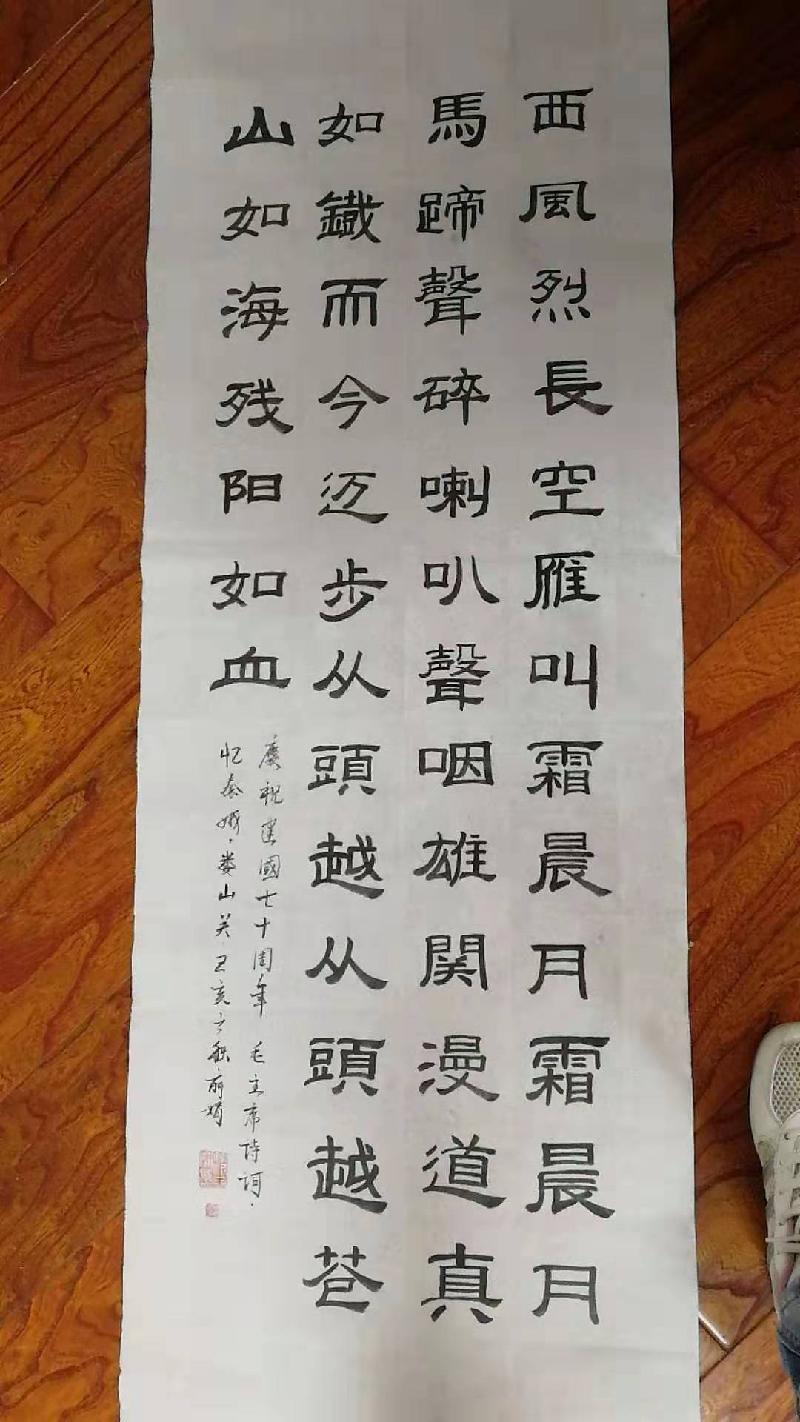 西風烈長空雁叫霜晨月霜晨月
馬蹄聲碎喇叭聲咽雄関漫道真
如鐵而今迈步从頭越从頭越苍
山如海残阳如血
庆祝建國七十周年 毛主席诗词·
忆秦娥·娄山关 己亥之秋